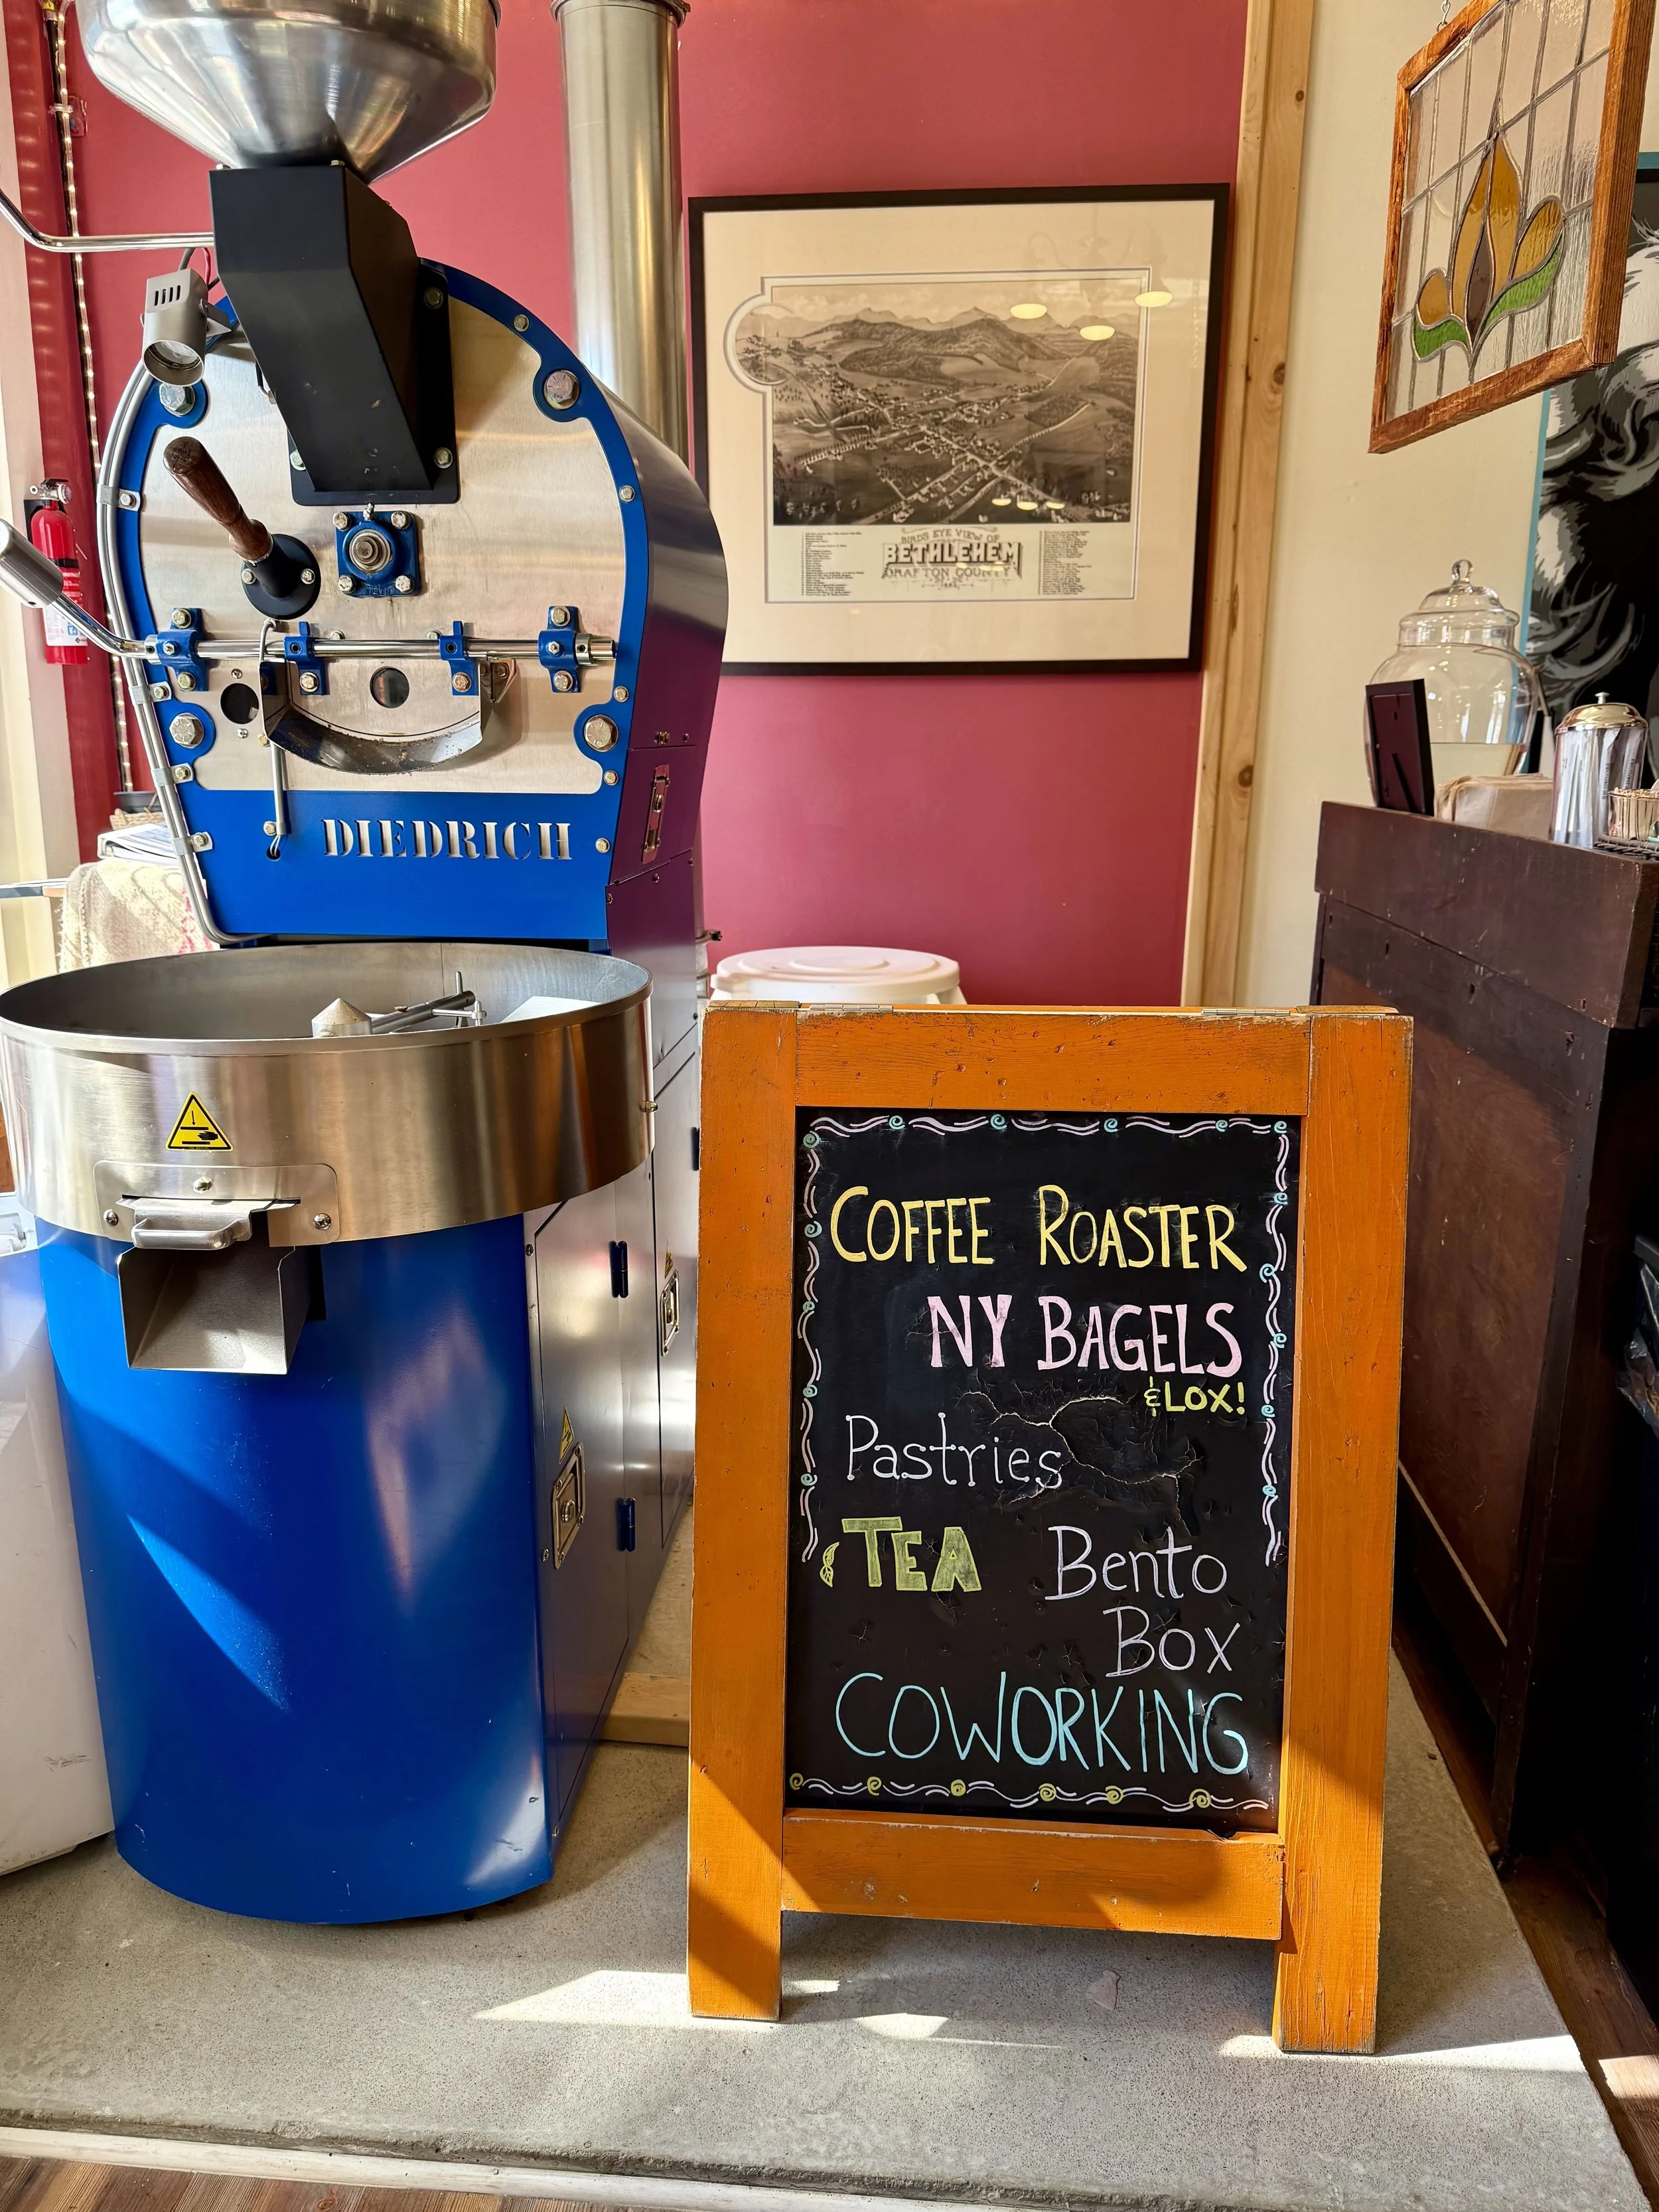 DIEDRICH
BIRDS EYE VIEW OF
BETHLEHEM
GRAFTON COUNTY
COFFEE ROASTER
NY BAGELS
& LOX!
Pastries
TEA Bento
Box
COWORKING